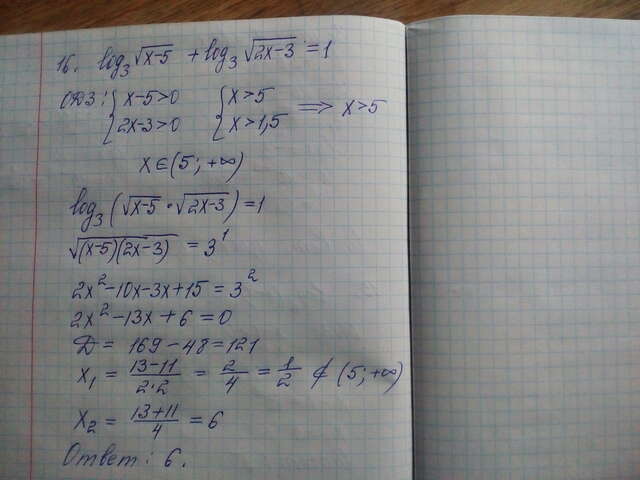 16. log₃√(x-5) + log₃√(2x-3) = 1
ОДЗ: { x-5>0 { x>5 ⟹ x>5
2x-3>0 x>1,5
x∈(5; +∞)
log₃(√(x-5) · √(2x-3)) = 1
√((x-5)(2x-3)) = 3¹
2x²-10x-3x+15 = 3²
2x²-13x+6=0
D = 169-48=121
x₁ = (13-11)/(2·2) = 2/4 = 1/2 ⊄ (5; +∞)
x₂ = (13+11)/4 = 6
Ответ: 6.